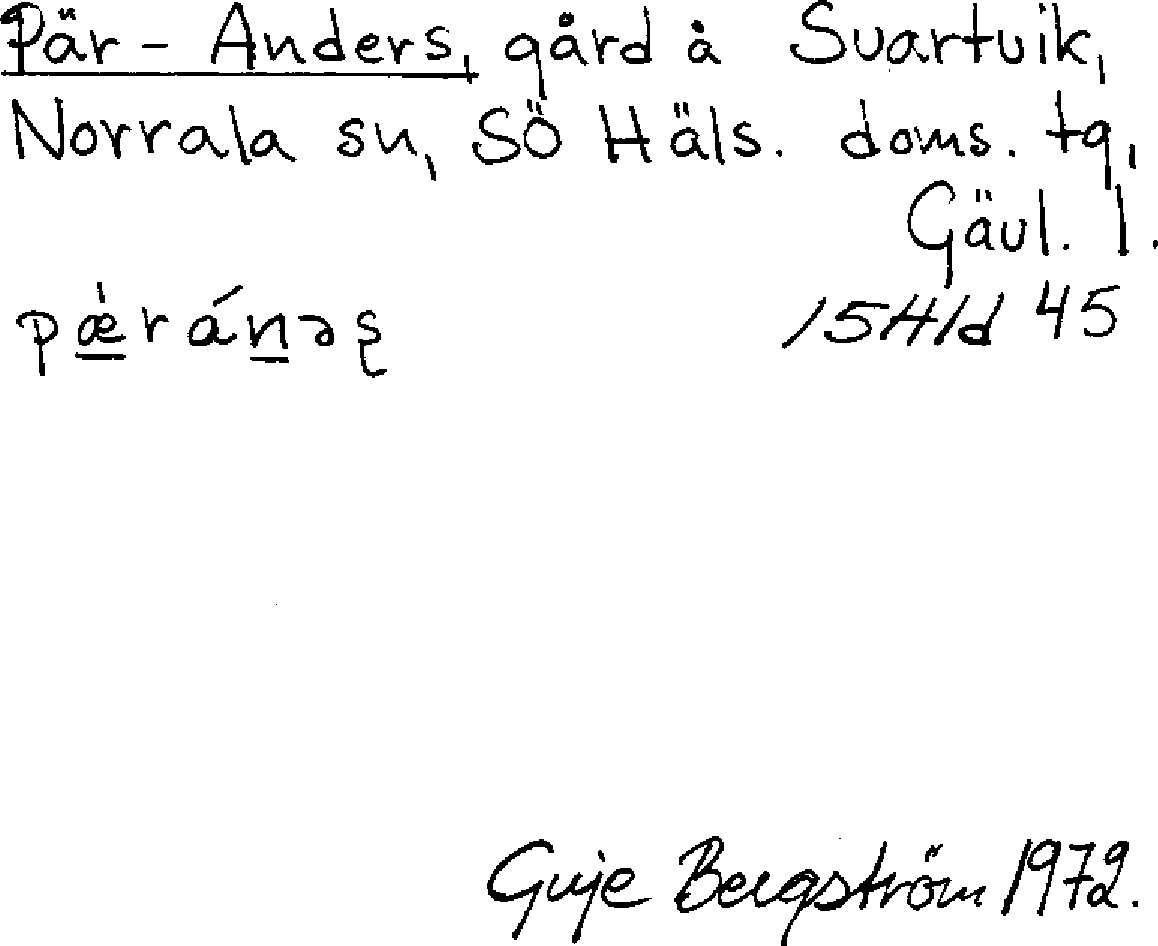 Pär-Anders, gård å Svartvik,
Norrala sn, Sö Häls. doms. tg,
Gävl. l.
pǽ̲rán̲əʂ 15H1d 45
Guje Bergström 1972.